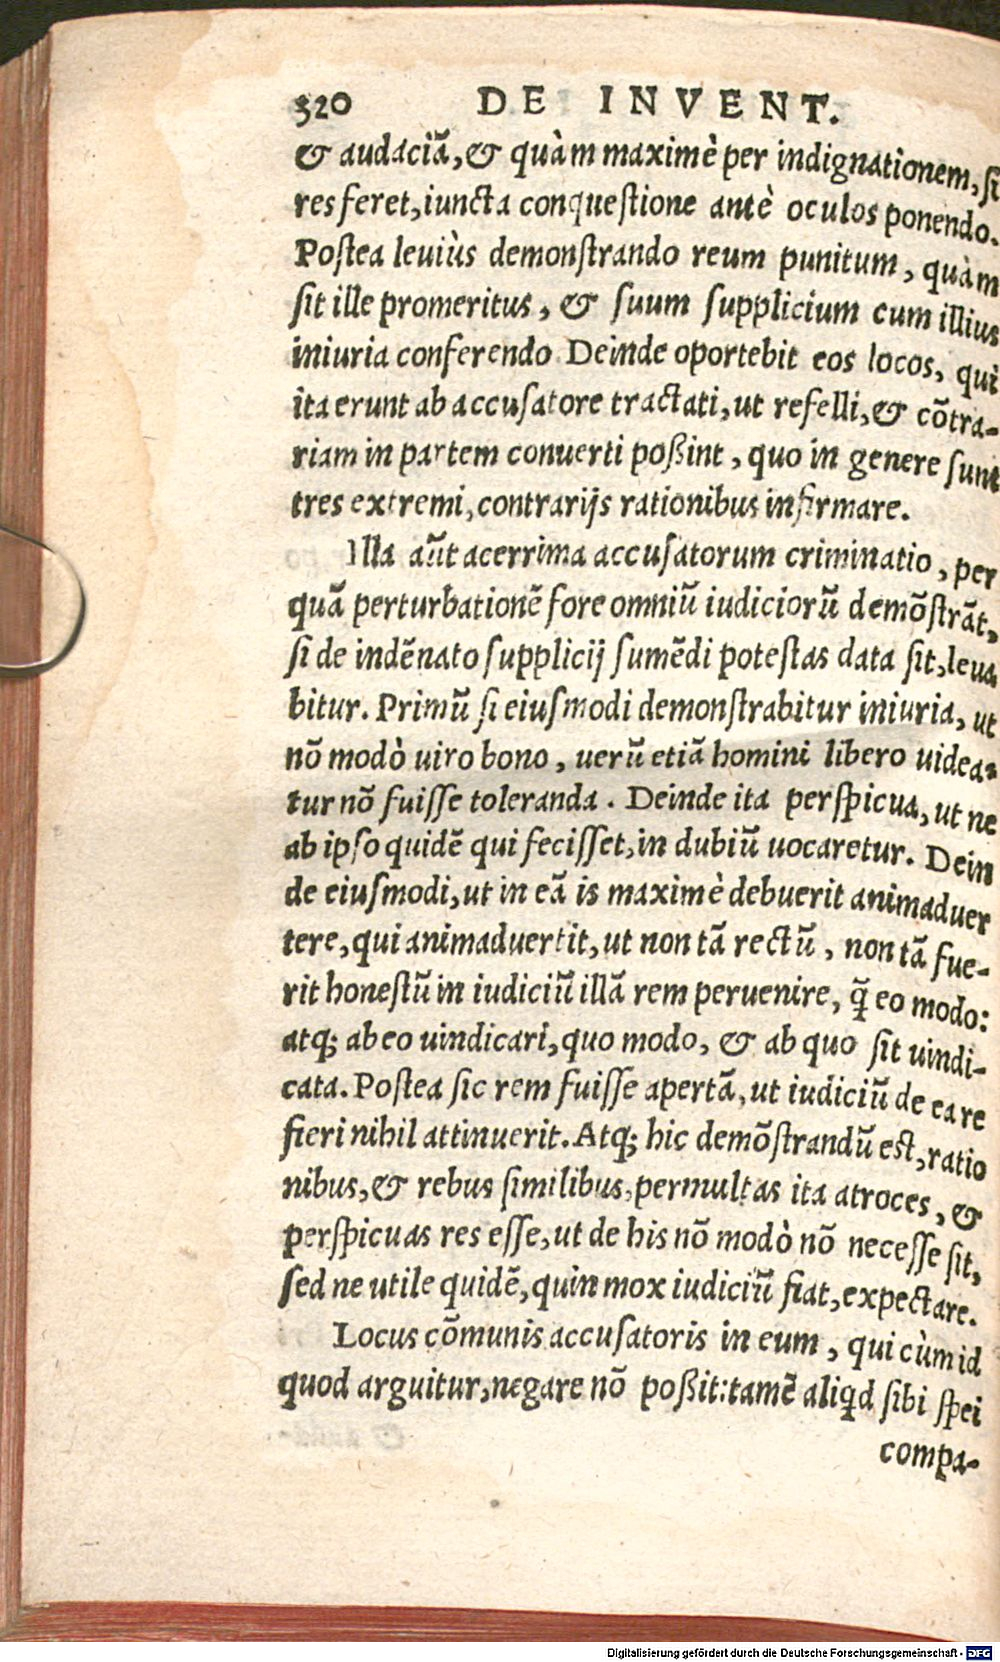 320 DE INVENT.
& audaciā, & quàm maximè per indignationem, ſi
res feret, iuncta conqueſtione antè oculos ponendo.
Poſtea leuiùs demonſtrando reum punitum, quàm
ſit ille promeritus, & ſuum ſupplicium cum illius
iniuria conferendo Deinde oportebit eos locos, qui
ita erunt ab accuſatore tractati, ut refelli, & cōtra-
riam in partem conuerti poßint, quo in genere ſunt
tres extremi, contrarijs rationibus infirmare.
Illa aūt acerrima accuſatorum criminatio, per
quā perturbationē fore omniū iudiciorū demōſtrāt,
ſi de indēnato ſupplicij ſumēdi poteſtas data ſit, leua
bitur. Primū ſi eiuſmodi demonſtrabitur iniuria, ut
nō modò uiro bono, uerū etiā homini libero uidea-
tur nō fuiſſe toleranda. Deinde ita perſpicua, ut ne
ab ipſo quidē qui feciſſet, in dubiū uocaretur. Dein
de eiuſmodi, ut in eā is maximè debuerit animaduer
tere, qui animaduertit, ut non tā rectū, non tā fue-
rit honeſtū in iudiciū illā rem peruenire, q̄ eo modo:
atq; ab eo uindicari, quo modo, & ab quo ſit uindi-
cata. Poſtea ſic rem fuiſſe apertā, ut iudiciū de ea re
fieri nihil attinuerit. Atq; hic demōſtrandū eſt, ratio
nibus, & rebus ſimilibus, permultas ita atroces, &
perſpicuas res eſſe, ut de his nō modò nō neceſſe ſit,
ſed ne utile quidē, quin mox iudiciū fiat, expectare.
Locus cōmunis accuſatoris in eum, qui cùm id
quod arguitur, negare nō poßit: tamē aliqd ſibi ſpei
compa-
Digitalisierung gefördert durch die Deutsche Forschungsgemeinschaft - DFG